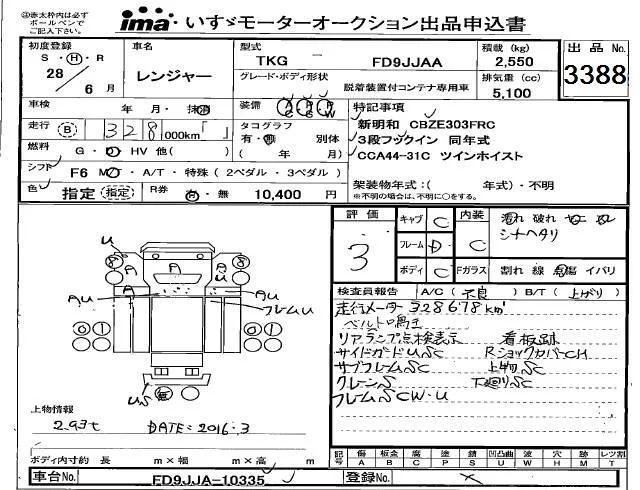 ㊟赤太枠内は必ず
ボールペンで
ご記入下さい。
ima いすゞモーターオークション出品申込書
初度登録
S・H・R
28
6月
車名
レンジャー
型式
TKG － FD9JJAA
グレード・ボディ形状
脱着装置付コンテナ専用車
積載 (kg)
2,550
排気量 (cc)
5,100
出品No.
3388
車検
年 月・抹消
装備 AC PS PW
走行 B 328,000km「 」
タコグラフ
有・無 別体
( 年 月)
燃料 G・D・HV 他( )
シフト F6 MT・A/T・特殊(2ペダル・3ペダル)
色 指定 (指定)
R券 有・無 10,400円
特記事項
新明和 CBZE303FRC
3段フックイン 同年式
CCA44-31C ツインホイスト
架装物年式:( 年式)・不明
※不明の場合は、不明に○をする。
評価
3
キャブ C
フレーム D
ボディ C
内装 C
Fガラス
汚れ 破れ
シートヘタリ
割れ 線 点傷 イバリ
検査員報告 A/C(不良) B/T(上がり)
走行メーター328678km
ベルト鳴き
リアランプ点検表示 看板跡
サイドガードUSC RショックカバーCH
サブフレームSC 上物SC
クレーンSC 下廻りSC
フレームSCW・U
U
A
A
AU
AU
フレームU
US
8
8
6
6
上物情報
2.93t DATE=2016.3
ボディ内寸約 長 m×幅 m×高 m
記号 傷A 板金B 腐C 塗P 錆S 凹凸曲U 波W 穴H 跡M レンズ割T
車台No. FD9JJA-10335
登録No.